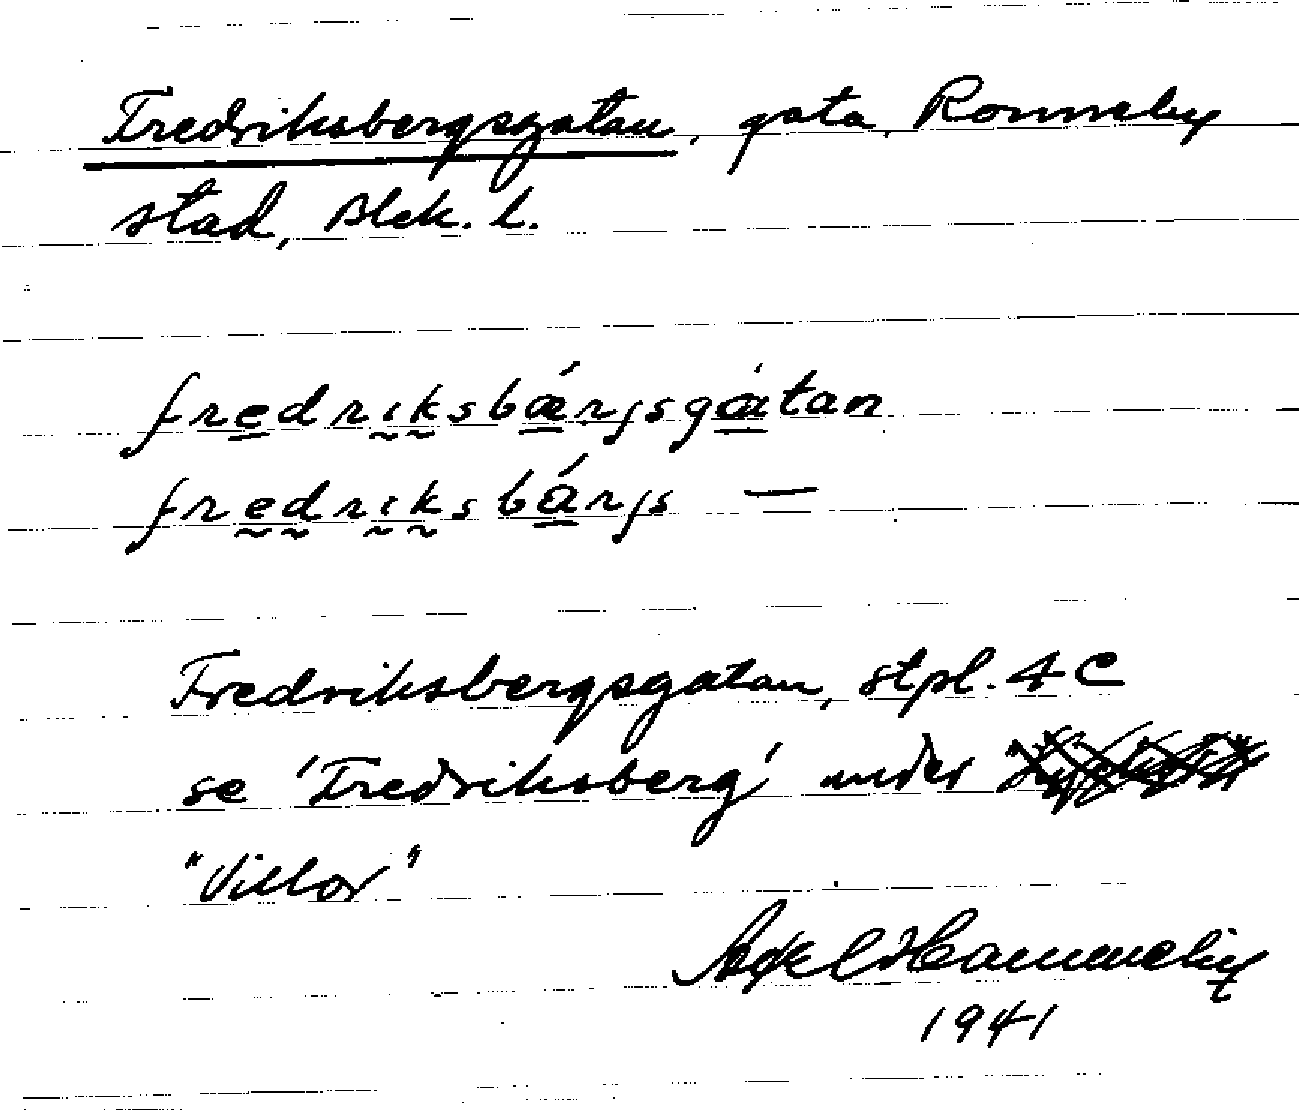 Fredriksbergsgatan, gata, Ronneby
stad, Blek. l.
fredriksbǽrjsgátan
fredriksbárjs —
Fredriksbergsgatan, stpl. 4 C
se 'Fredriksberg' under
"Villor"
Axel Hammelin
1941